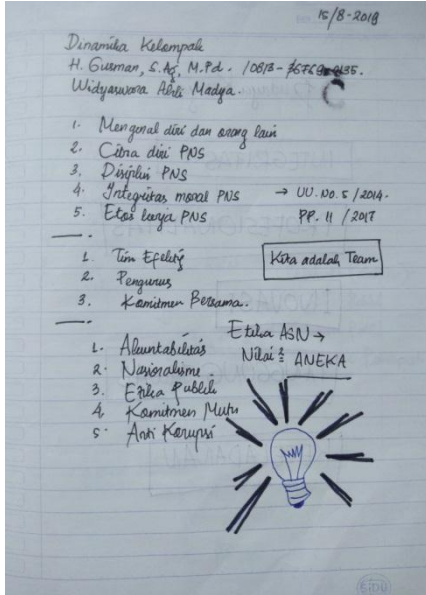 15/8-2019
Dinamika Kelompok
H. Gusman, S.Ag, M.Pd. /0813-
Widyaiswara Ahli Madya.
1. Mengenal diri dan orang lain
2. Citra diri PNS
3. Disiplin PNS
4. Integritas moral PNS → UU. No. 5 / 2014.
5. Etos kerja PNS PP. 11 / 2017
1. Tim Efektif
2. Pengurus
3. Komitmen Bersama.
Kita adalah Team
Etika ASN →
Nilai² ANEKA
1. Akuntabilitas
2. Nasionalisme
3. Etika Publik
4. Komitmen Mutu
5. Anti Korupsi
SIDU